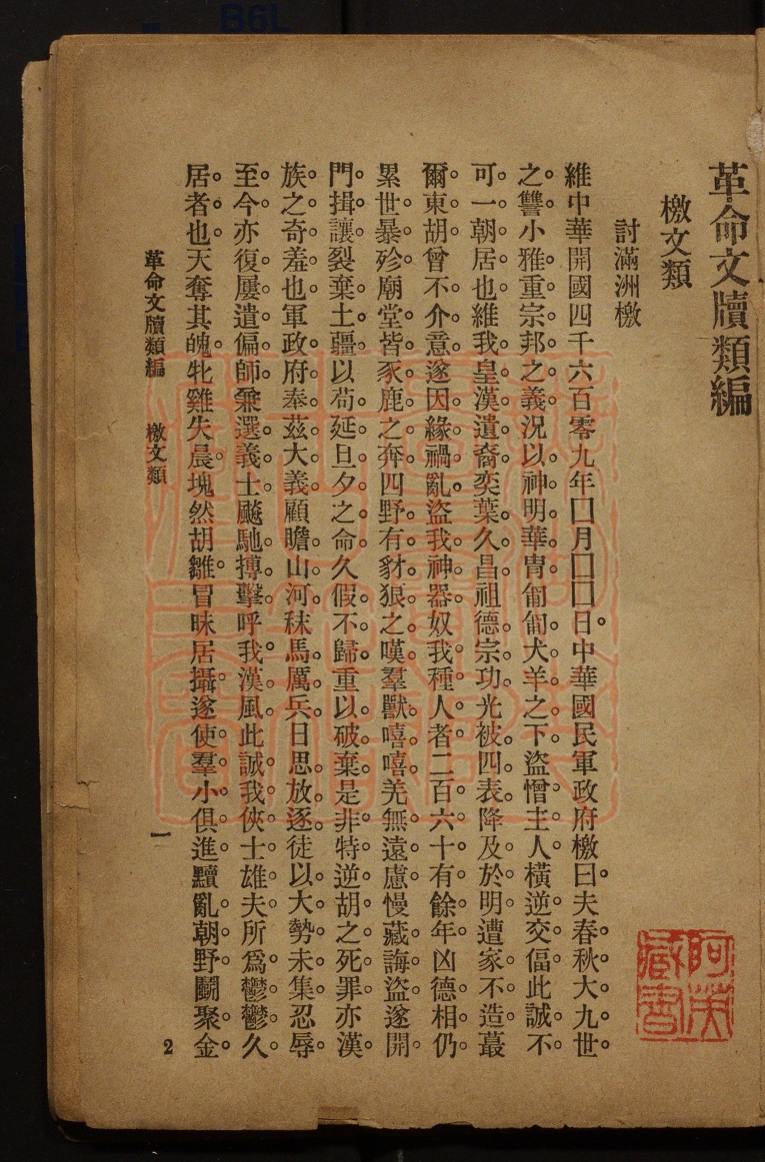 革命文牘類編
檄文類
討滿洲檄
維中華開國四千六百零九年囗月囗囗日。中華國民軍政府檄曰。夫春。秋。大。九。世。
之。讐。小。雅。重。宗。邦。之。義。況以。神。明。華。冑。匍。匐。犬。羊。之。下。盜。憎。主。人。橫。逆。交。偪。此。誠。不。
可。一。朝。居。也。維我。皇。漢。遺。裔。奕。葉。久。昌。祖。德。宗。功。光。被。四。表。降。及。於。明。遭。家。不。造。蕞。
爾。東。胡。曾。不。介。意。遂。因。緣。禍。亂。盜。我。神。器。奴。我。種。人。者。二。百。六。十。有。餘。年。凶德。相。仍。
累。世。暴。殄。廟。堂。皆。豕。鹿。之。奔。四。野。有。豺。狼。之。嘆。羣。獸。嘻。嘻。羌。無。遠。慮。慢。藏。誨。盜。遂。開。
門。揖。讓。裂。棄。土。疆。以。苟。延。旦。夕。之。命。久。假。不。歸。重。以。破。棄。是。非。特。逆。胡。之。死。罪。亦。漢。
族。之。奇。羞。也。軍政府奉茲大義顧。瞻。山。河。秣。馬。厲。兵。日。思。放。逐。徒以。大。勢。未。集。忍。辱。
至。今。亦復。屢。遣。偏。師。兼。選。義。士。飈。馳。搏。擊。呼我。漢。風。此誠。我。俠。士雄。夫。所。爲。鬱。鬱。久。
居。者。也。天奪其。魄。牝雞失晨。塊然胡雛。冒昧居攝。遂使。羣。小。俱。進黷。亂。朝。野。鬬。聚。金。
革命文牘類編
檄文類
一
2
B6L